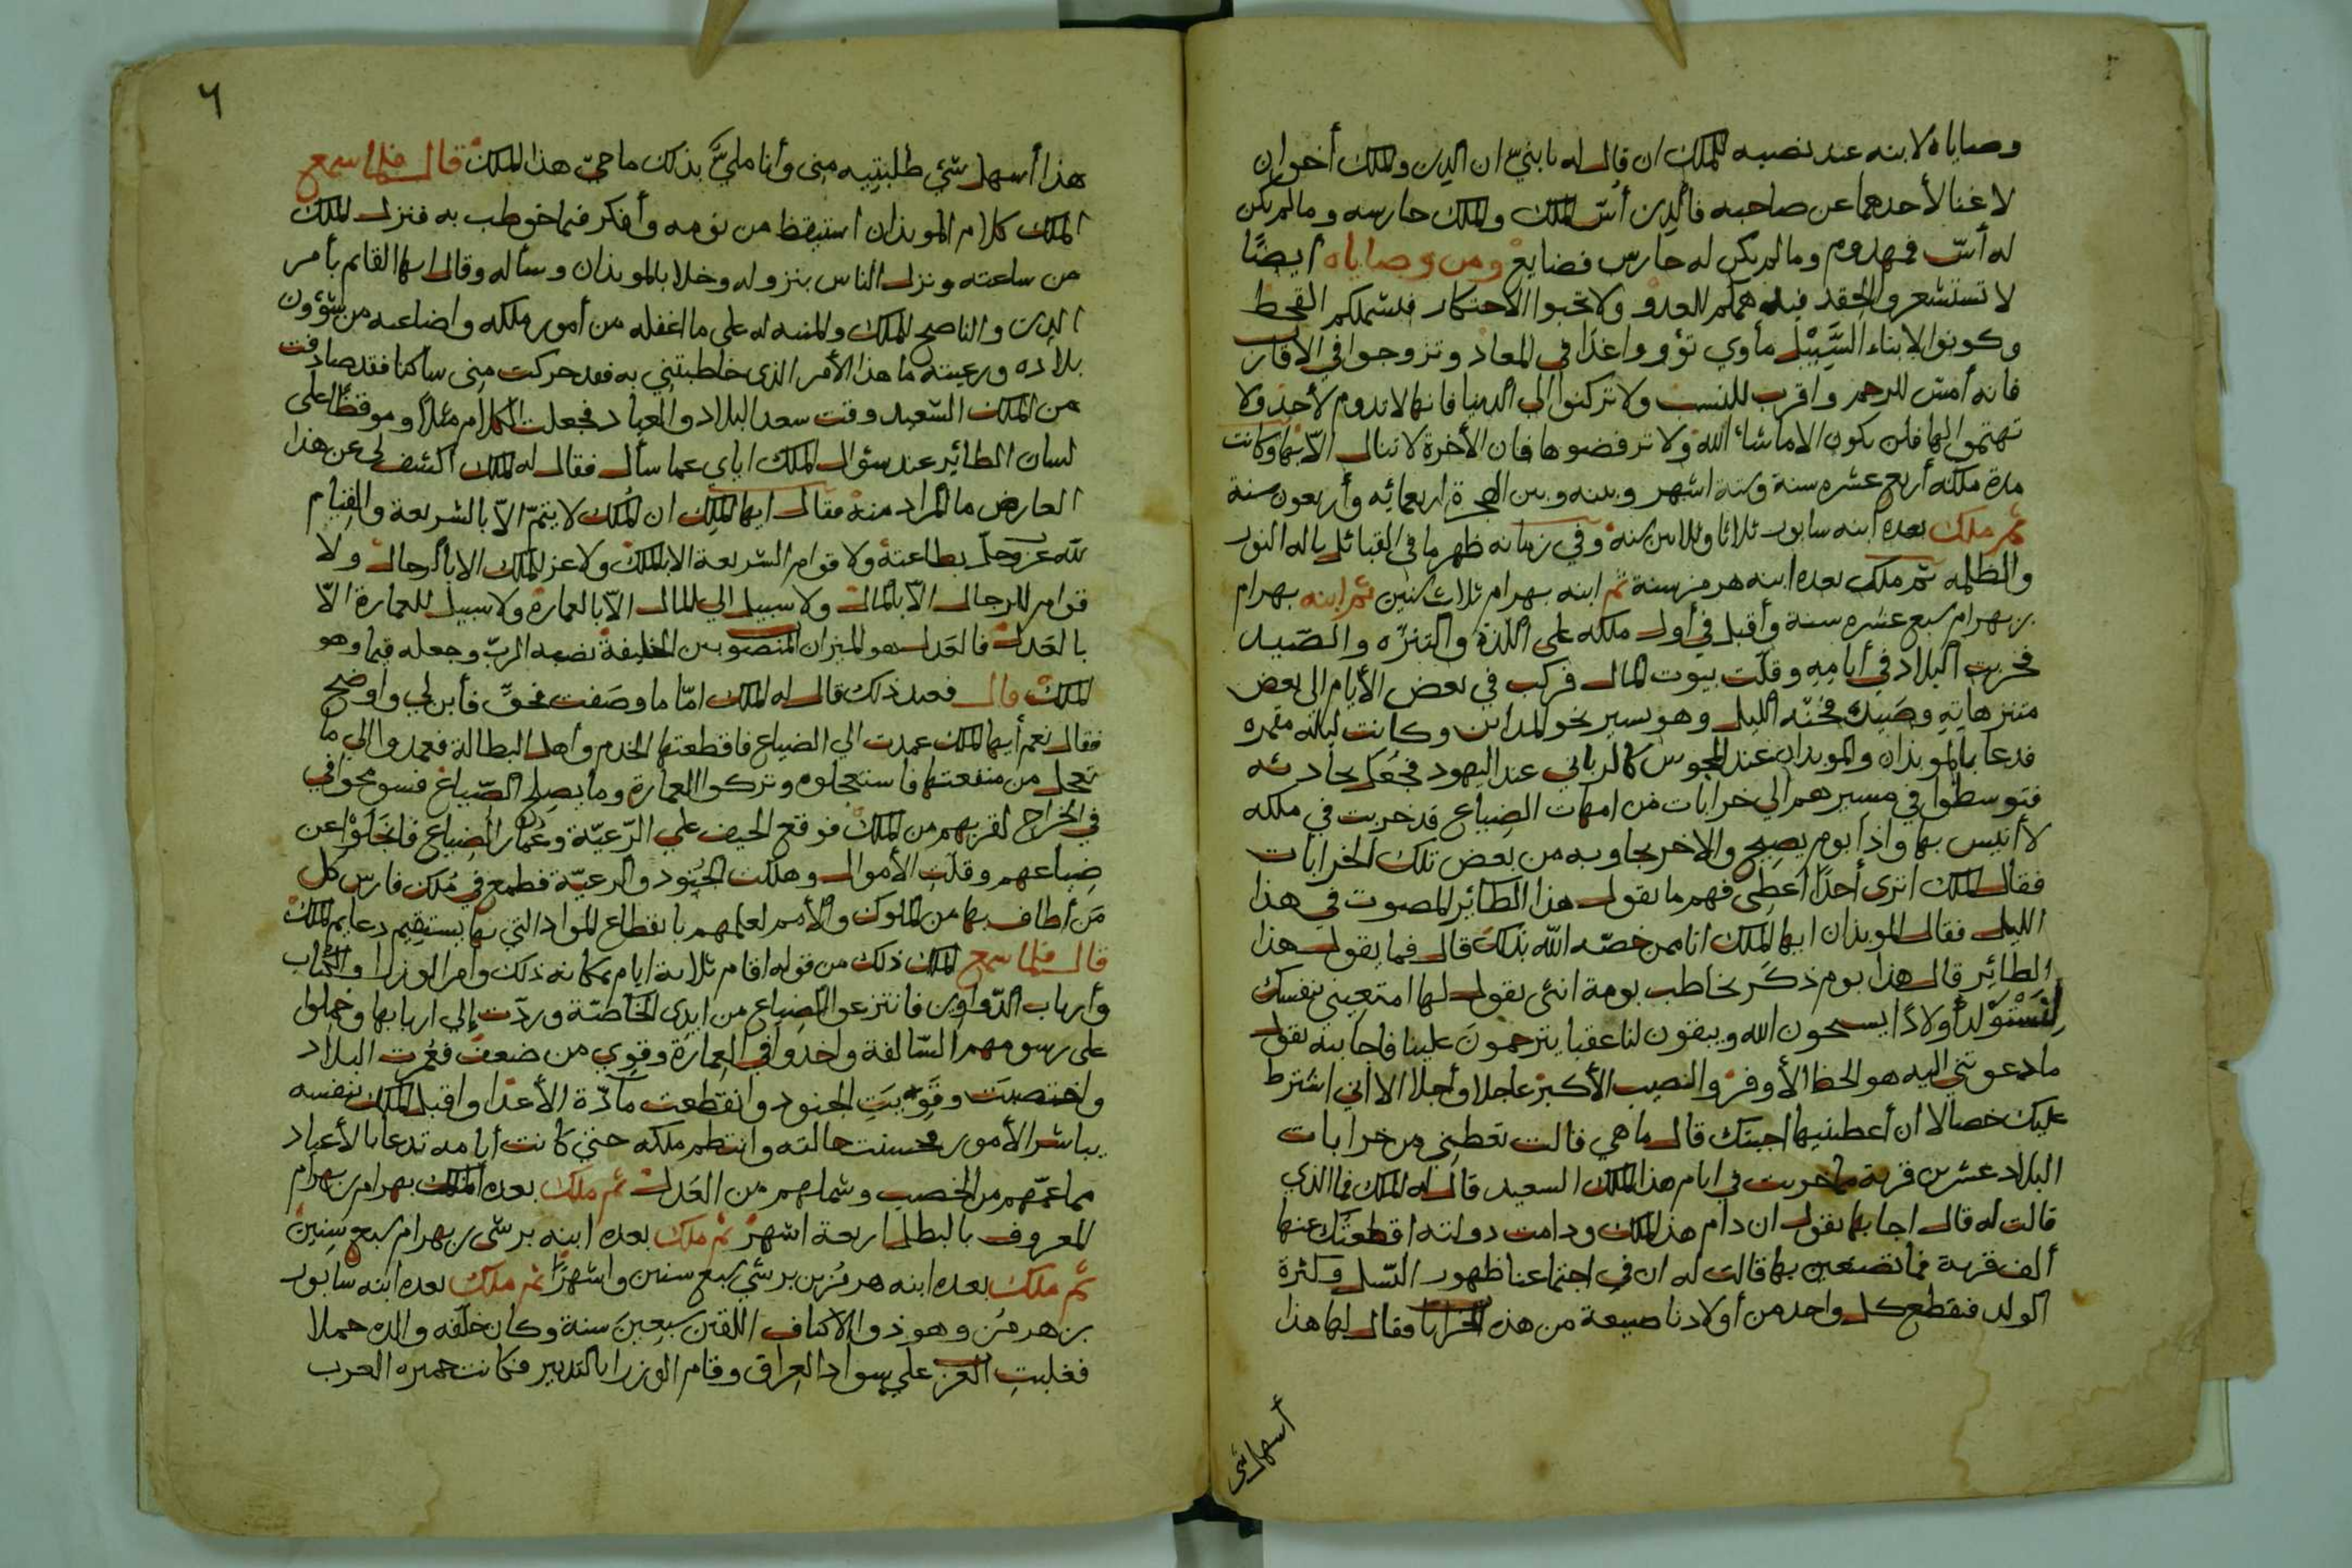 وصاياه لابنه عند نصبه للملك ان قال له يا بنيّ ان الدين والملك أخوان
لا غنا لأحدهما عن صاحبه فالدين أسّ الملك والملك حارسه وما لم يكن
له أسّ فمهدوم وما لم يكن له حارس فضايع ومن وصاياه ايضًا
لا تستشعروا الحقد فيدهمكم العدو ولا تحبوا الاحتكار فيشملكم القحط
وكونوا لابناء السَّبِيْل مأوي تؤووا غدًا في المعاد وتزوجوا في الاقارب
فانه أمسّ للرحم واقرب للنسب ولا تركنوا الي الدنيا فانها لا تدوم لأحد ولا
تهتموا لها فلن يكون الا ما شاء الله ولا ترفضوها فان الأخرة لا تنال الاّ بها وكانت
مدة ملكه أربع عشره سنة وستة اشهر وبينه وبين الهجرة اربعمائه وأربعون سنة
ثم ملك بعده ابنه سابور ثلاثا وثلاثين سنة وفي زمانه ظهر ماني القائل باله النور
والظلمه ثم ملك بعده ابنه هرمز سنة ثم ابنه بهرام ثلاث سنين ثم ابنه بهرام
بن بهرام سبع عشره سنة وأقبل في أول ملكه علي اللذة والتنزّه والصّيد
فخربت البلاد في أيامِهِ وقلّت بيوت المال فركب في بعض الأيام الى بعض
متنزهاتِهِ وصَيْدِه فجنّه الليل وهو يسير نحو المداين وكانت ليلة مقمره
فدعا بالموبذان والموبدان عند المجوس كالرباني عند اليهود فجُعل يحادثه
فتوسطوا في مسيرهم الي خرابات من امهات الضياع قد خربت في ملكه
لا أنيس بها واذا بوم يصيح والاخر يجاوبه من بعض تلك الخرابات
فقال الملك اترى أحدًا أعطِى فهم ما يقول هذا الطائر المصوت في هذا
الليل فقال الموبذان ايها المَلِك انا ممن خصّه الله بذلك قال فما يقول هذا
الطائِر قال هذا بوم ذكَر يخاطب بومة انثى يقول لها امتعِيني بنفسك
لِنَسْتَوْلِد أولادًا يسبحون الله ويبقون لنا عقبا يترحمونَ علينا فاجابته تقول
ما دعوتني اليه هو الحظ الأوفر والنصيب الأكبر عاجلا وأجلا الا اني اشترط
عليك خصالا ان أعطيتنيها اجبتك قال ما هي قالت تعطيني من خرابات
البلاد عشرين قرية مما خربت في ايام هذا الملك السعيد قال له الملك فما الذي
قالت له قال اجابها يقول ان دام هذا الملك ودامت دولته اقطعتكِ منها
ألف قرية فما تصنعين بها قالت له ان في اجتماعنا ظهور النسل وكثرة
الولد فنقطع كل واحد من أولادنا ضيعة من هذه الخرابا فقال لها هذا
أسهل شي
٦
هذا أسهل شيٍ طلبتِيه مِني وأنا مليٌّ بذلك ما حيّ هذا الملك قال فلما سمع
الملك كلام الموبذان استيقظ من نومه وأفكر فيما خوطب به فنزل الملك
من ساعته ونزل الناس بنزوله وخلا بالموبذان وسأله وقال ايها القايم بأمر
الدين والناصح للملك والمنبه له على ما اغفله من أمور ملكه واضاعه من شؤون
بلاده ورعيته ما هذا الأمر الذى خاطبتني به فقد حركت مِنى ساكنا فقد صادفت
من الملك السَّعيد وقت سعد البلاد والعباد فجعلت الكلام مثلاً وموقظًا على
لسان الطائر عند سؤال الملك اياى عما سأل فقال له الملك اكشف لي عن هذا
العارض ما المراد منه فقال ايها المَلِك ان المُلك لا يتمّ الاّ بالشريعة والقيام
لله عز وجلّ بطاعته ولا قوام للشريعة الا بالملك ولا عز للملك الا بالرجال ولا
قوام للرجال الاّ بالمال ولا سبيل الي المال الاّ بالعمارة ولا سبيل للعمارة الاّ
بالعَدل فالعَدل هو الميزان المنصوب بين الخليقة نصبه الربّ وجعله قيما وهو
الملك قال فعند ذلك قال له الملك امّا ما وصَفت فحقٌ فأبن لي واوضح
فقال نعم أيها الملك عمدت الي الضياع فاقطعتها الخدم وأهل البطالة فعمدوا الي ما
تعجل من منفعتها فاستعجلوه وتركوا العمارة وما يصلح الضّياع فسومحوا في
في الخراج لقربهم من الملك فوقع الحيف علي الرّعيّة وعُمار الضياع فانجَلَوْا عن
ضِياعهم وقلّتِ الأموال وهلكت الجُنود والرعيّة فطمع في مُلك فارس كل
مَن أطاف بها من الملوك والأمم لعلمهم بانقطاع المواد التي بها يستقِيم دعايم الملك
قال فلما سمع الملك ذلك من قوله اقام ثلاثة ايام بمكانه ذلك وامر الوزرا والكتاب
وأرباب الدّواوين فانتزعوا الضِياع من ايدِى الخاصّة وردّت إلي اربابها وحُملوا
على رسومهم السّالفة واخذوا في العِمارة وقوِي من ضعف فعُمرت البلاد
واختصبَت وقَوِيَتِ الجنود وانقطعت مادّة الأعدا واقبل الملك بنفسه
يباشر الأمور فحسنت حالته وانتظم ملكه حتي كانت أيامه تدعا بالأعياد
مما عمّهم من الخصب وشملهم من العَدل ثم ملك بعده الملك بهرام بن بهرام
المعروف بالبطل اربعة اشهر ثم ملك بعده ابنه برشى بن بهرام سبع سِنِين
ثم ملك بعده ابنه هرمُز بن برشي سبع سنين واشهرًا ثم ملك بعده ابنه سابور
بن هرمُز وهو ذو الاكتاف اثنتين سَبعِينَ سنة وكان خلّفه والده حملا
فغلبتِ العرب علي سواد العِراق وقام الوزرا بالتدبير فكانت جمهره العرب